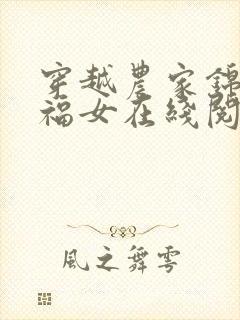 穿越農家錦
福女在綫閱
風之舞雩